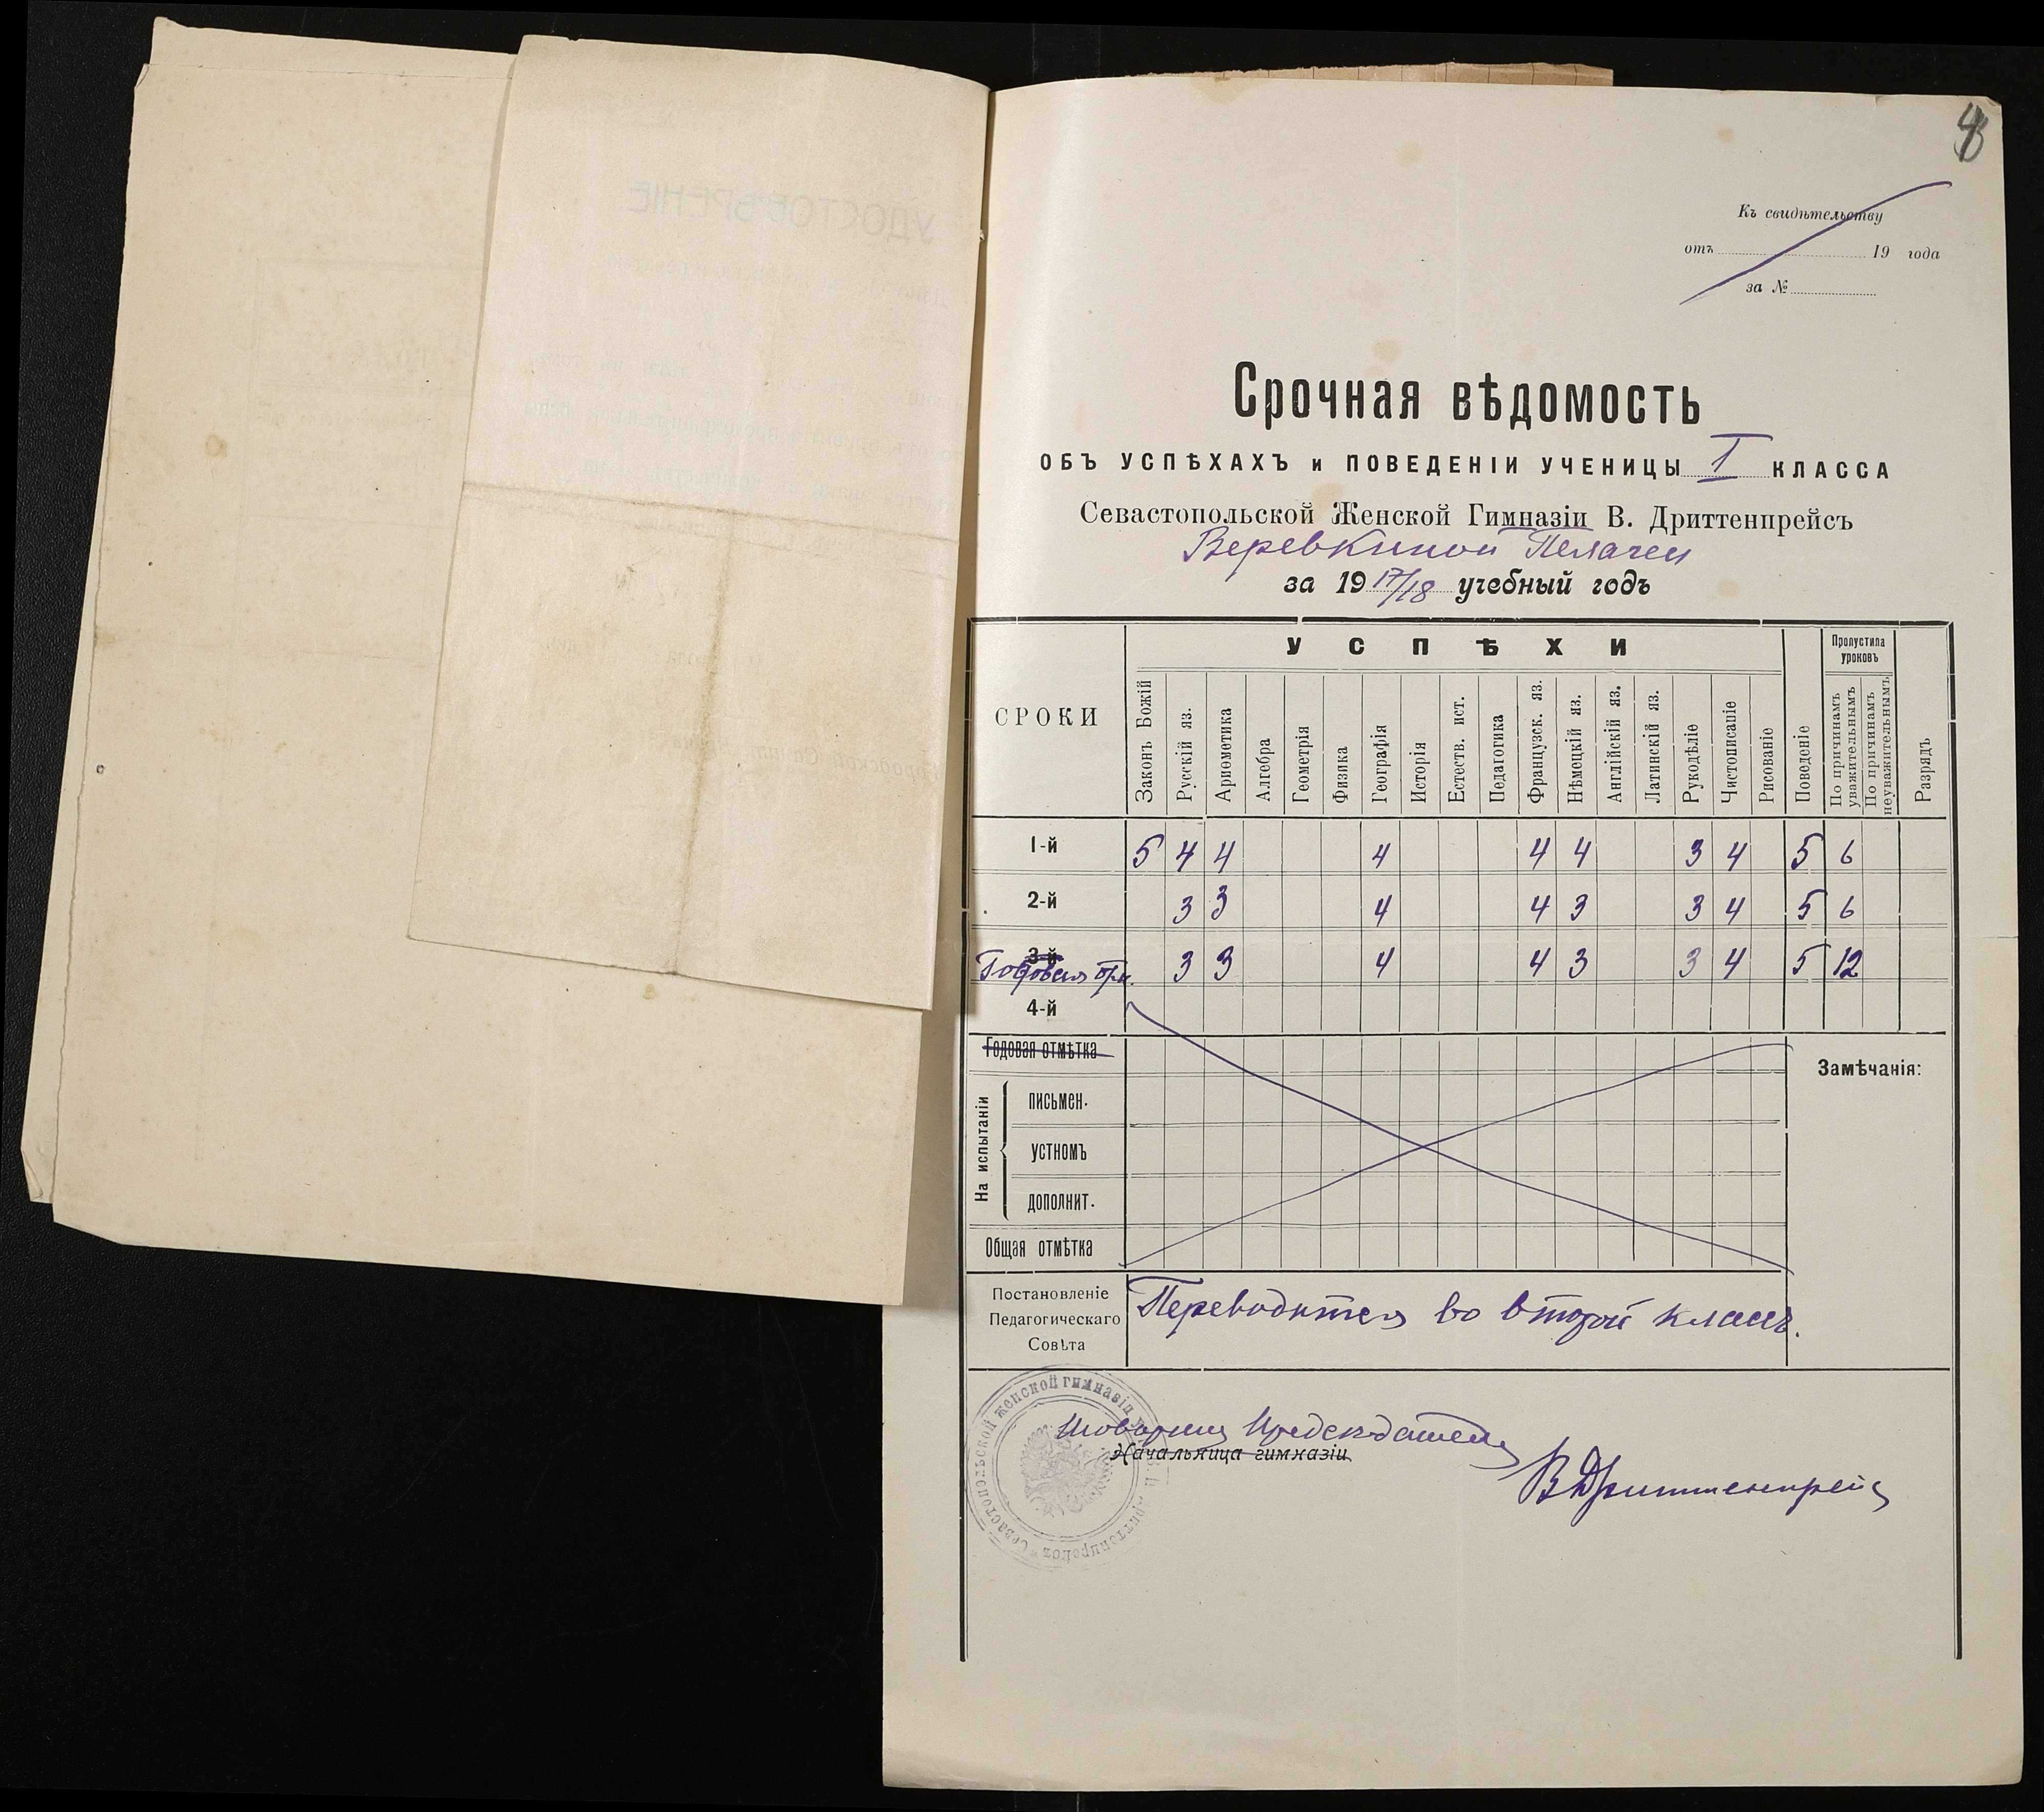 УДОСТОВѢРЕНІЕ
4
Къ свидѣтельству
отъ 19 года
за №
Срочная вѣдомость
ОБЪ УСПѢХАХЪ и ПОВЕДЕНІИ УЧЕНИЦЫ I КЛАССА
Севастопольской Женской Гимназіи В. Дриттенпрейсъ
Веревкиной Пелагеи
за 19 17/18 учебный годъ
СРОКИ
УСПѢХИ
Пропустила уроковъ
Законъ Божій
Русскій яз.
Ариѳметика
Алгебра
Геометрія
Физика
Географія
Исторія
Естеств. ист.
Педагогика
Французск. яз.
Нѣмецкій яз.
Англійскій яз.
Латинскій яз.
Рукодѣліе
Чистописаніе
Рисованіе
Поведеніе
По причинамъ уважительнымъ
По причинамъ неуважительнымъ
Разрядъ
1-й 5 4 4 4 4 4 3 4 5 6
2-й 3 3 4 4 3 3 4 5 6
3-й
Годовая 3 3 4 4 3 3 4 5 12
4-й
Годовая отмѣтка
Замѣчанія:
На испытаніи
письмен.
устномъ
дополнит.
Общая отмѣтка
Постановленіе
Педагогическаго
Совѣта
Переводится во второй классъ.
Товарищ Председателя
Начальница гимназіи
ВДриттенпрейс
Севастопольской женской гимназіи